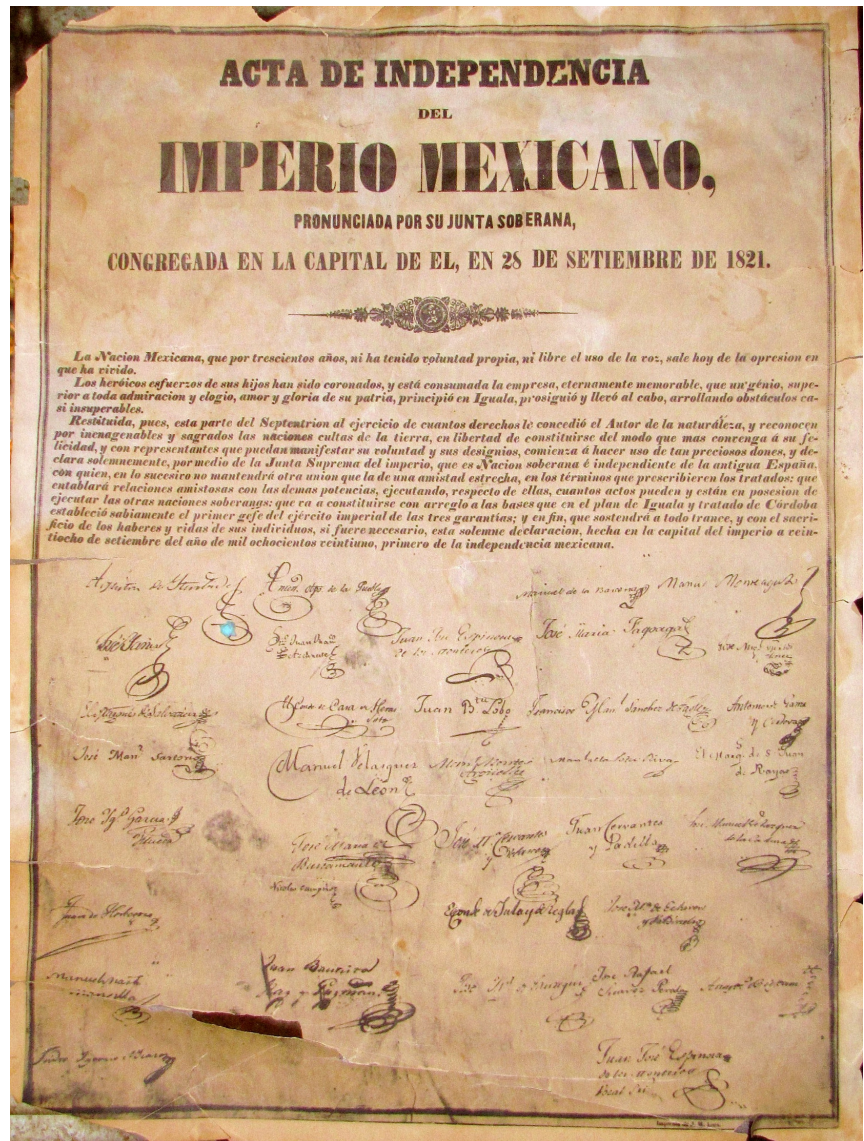 ACTA DE INDEPENDENCIA
DEL
IMPERIO MEXICANO,
PRONUNCIADA POR SU JUNTA SOBERANA,
CONGREGADA EN LA CAPITAL DE EL, EN 28 DE SETIEMBRE DE 1821.
La Nacion Mexicana, que por trescientos años, ni ha tenido voluntad propia, ni libre el uso de la voz, sale hoy de la opresion en
que ha vivido.
Los heróicos esfuerzos de sus hijos han sido coronados, y está consumada la empresa, eternamente memorable, que un génio, supe-
rior a toda admiracion y elogio, amor y gloria de su patria, principió en Iguala, prosiguió y llevó al cabo, arrollando obstáculos ca-
si insuperables.
Restituida, pues, esta parte del Septentrion al ejercicio de cuantos derechos le concedió el Autor de la naturáleza, y reconocen
por inenagenables y sagrados las naciones cultas de la tierra, en libertad de constituirse del modo que mas convenga á su fe-
licidad, y con representantes que puedan manifestar su voluntad y sus designios, comienza á hacer uso de tan preciosos dones, y de-
clara solemnemente, por medio de la Junta Suprema del imperio, que es Nacion soberana é independiente de la antigua España,
con quien, en lo sucesivo no mantendrá otra union que la de una amistad estrecha, en los términos que prescribieren los tratados: que
entablará relaciones amistosas con las demas potencias, ejecutando, respecto de ellas, cuantos actos pueden y están en posesion de
ejecutar las otras naciones soberanas: que va a constituirse con arreglo a las bases que en el plan de Iguala y tratado de Córdoba
estableció sabiamente el primer gefe del ejército imperial de las tres garantías; y en fin, que sostendrá a todo trance, y con el sacri-
ficio de los haberes y vidas de sus individuos, si fuere necesario, esta solemne declaracion, hecha en la capital del imperio a vein-
tiocho de setiembre del año de mil ochocientos veintiuno, primero de la independencia mexicana.
de la Puebla
Manuel de la
Juan
José Maria Fagoaga
Juan B Lobo
Francisco Sanchez de
Antonio de Gama
y
José Man Sartorio
Manuel Velasquez
de Leon
de S Juan
de Rayas
Jose Garcia
José Maria
Bustamante
José Cervantes
y
Juan Cervantes
y Padilla
Nicolas
Juan de Horbegoso
Conde de y de Regla
Manuel
Juan Bautista
y Guzman
José
Jose Rafael
Suarez
Juan José Espinosa
de los Monteros
Vocal